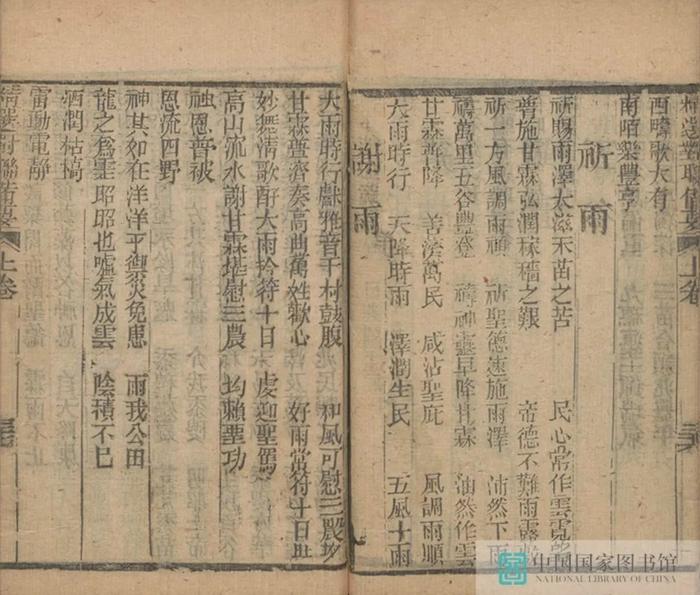 西疇歌大有
南陌樂豐亨
祈雨
祈賜雨澤太滋禾苗之苦 民心常作雲霓望
普施甘霖弘潤稼穡之艱 帝德不難雨露
祈一方風調雨順 祈聖德速施雨澤 沛然下雨
禱萬里五谷豐登 禱神靈早降甘霖 油然作雲
甘霖普降 善濟萬民 咸沾聖庇 風調雨順
大雨時行 天降時雨 澤潤生民 五風十雨
謝雨
大雨時行獻雅音千村鼓腹 和風可慰三農
甘霖普濟奏高曲萬姓歡心 好雨常符十日
妙舞清歌酧大雨於符十日 虔迎聖駕
高山流水謝甘霖堪慰三農 均賴聖功
神恩普被
恩流四野
神其如在洋洋乎禦災免患 雨我公田
龍之為靈昭昭也噓氣成雲 陰積不已
洒潤枯槁
雷動電靜
精選對聯備要 上卷
中国国家图书馆
NATIONAL LIBRARY OF CHINA